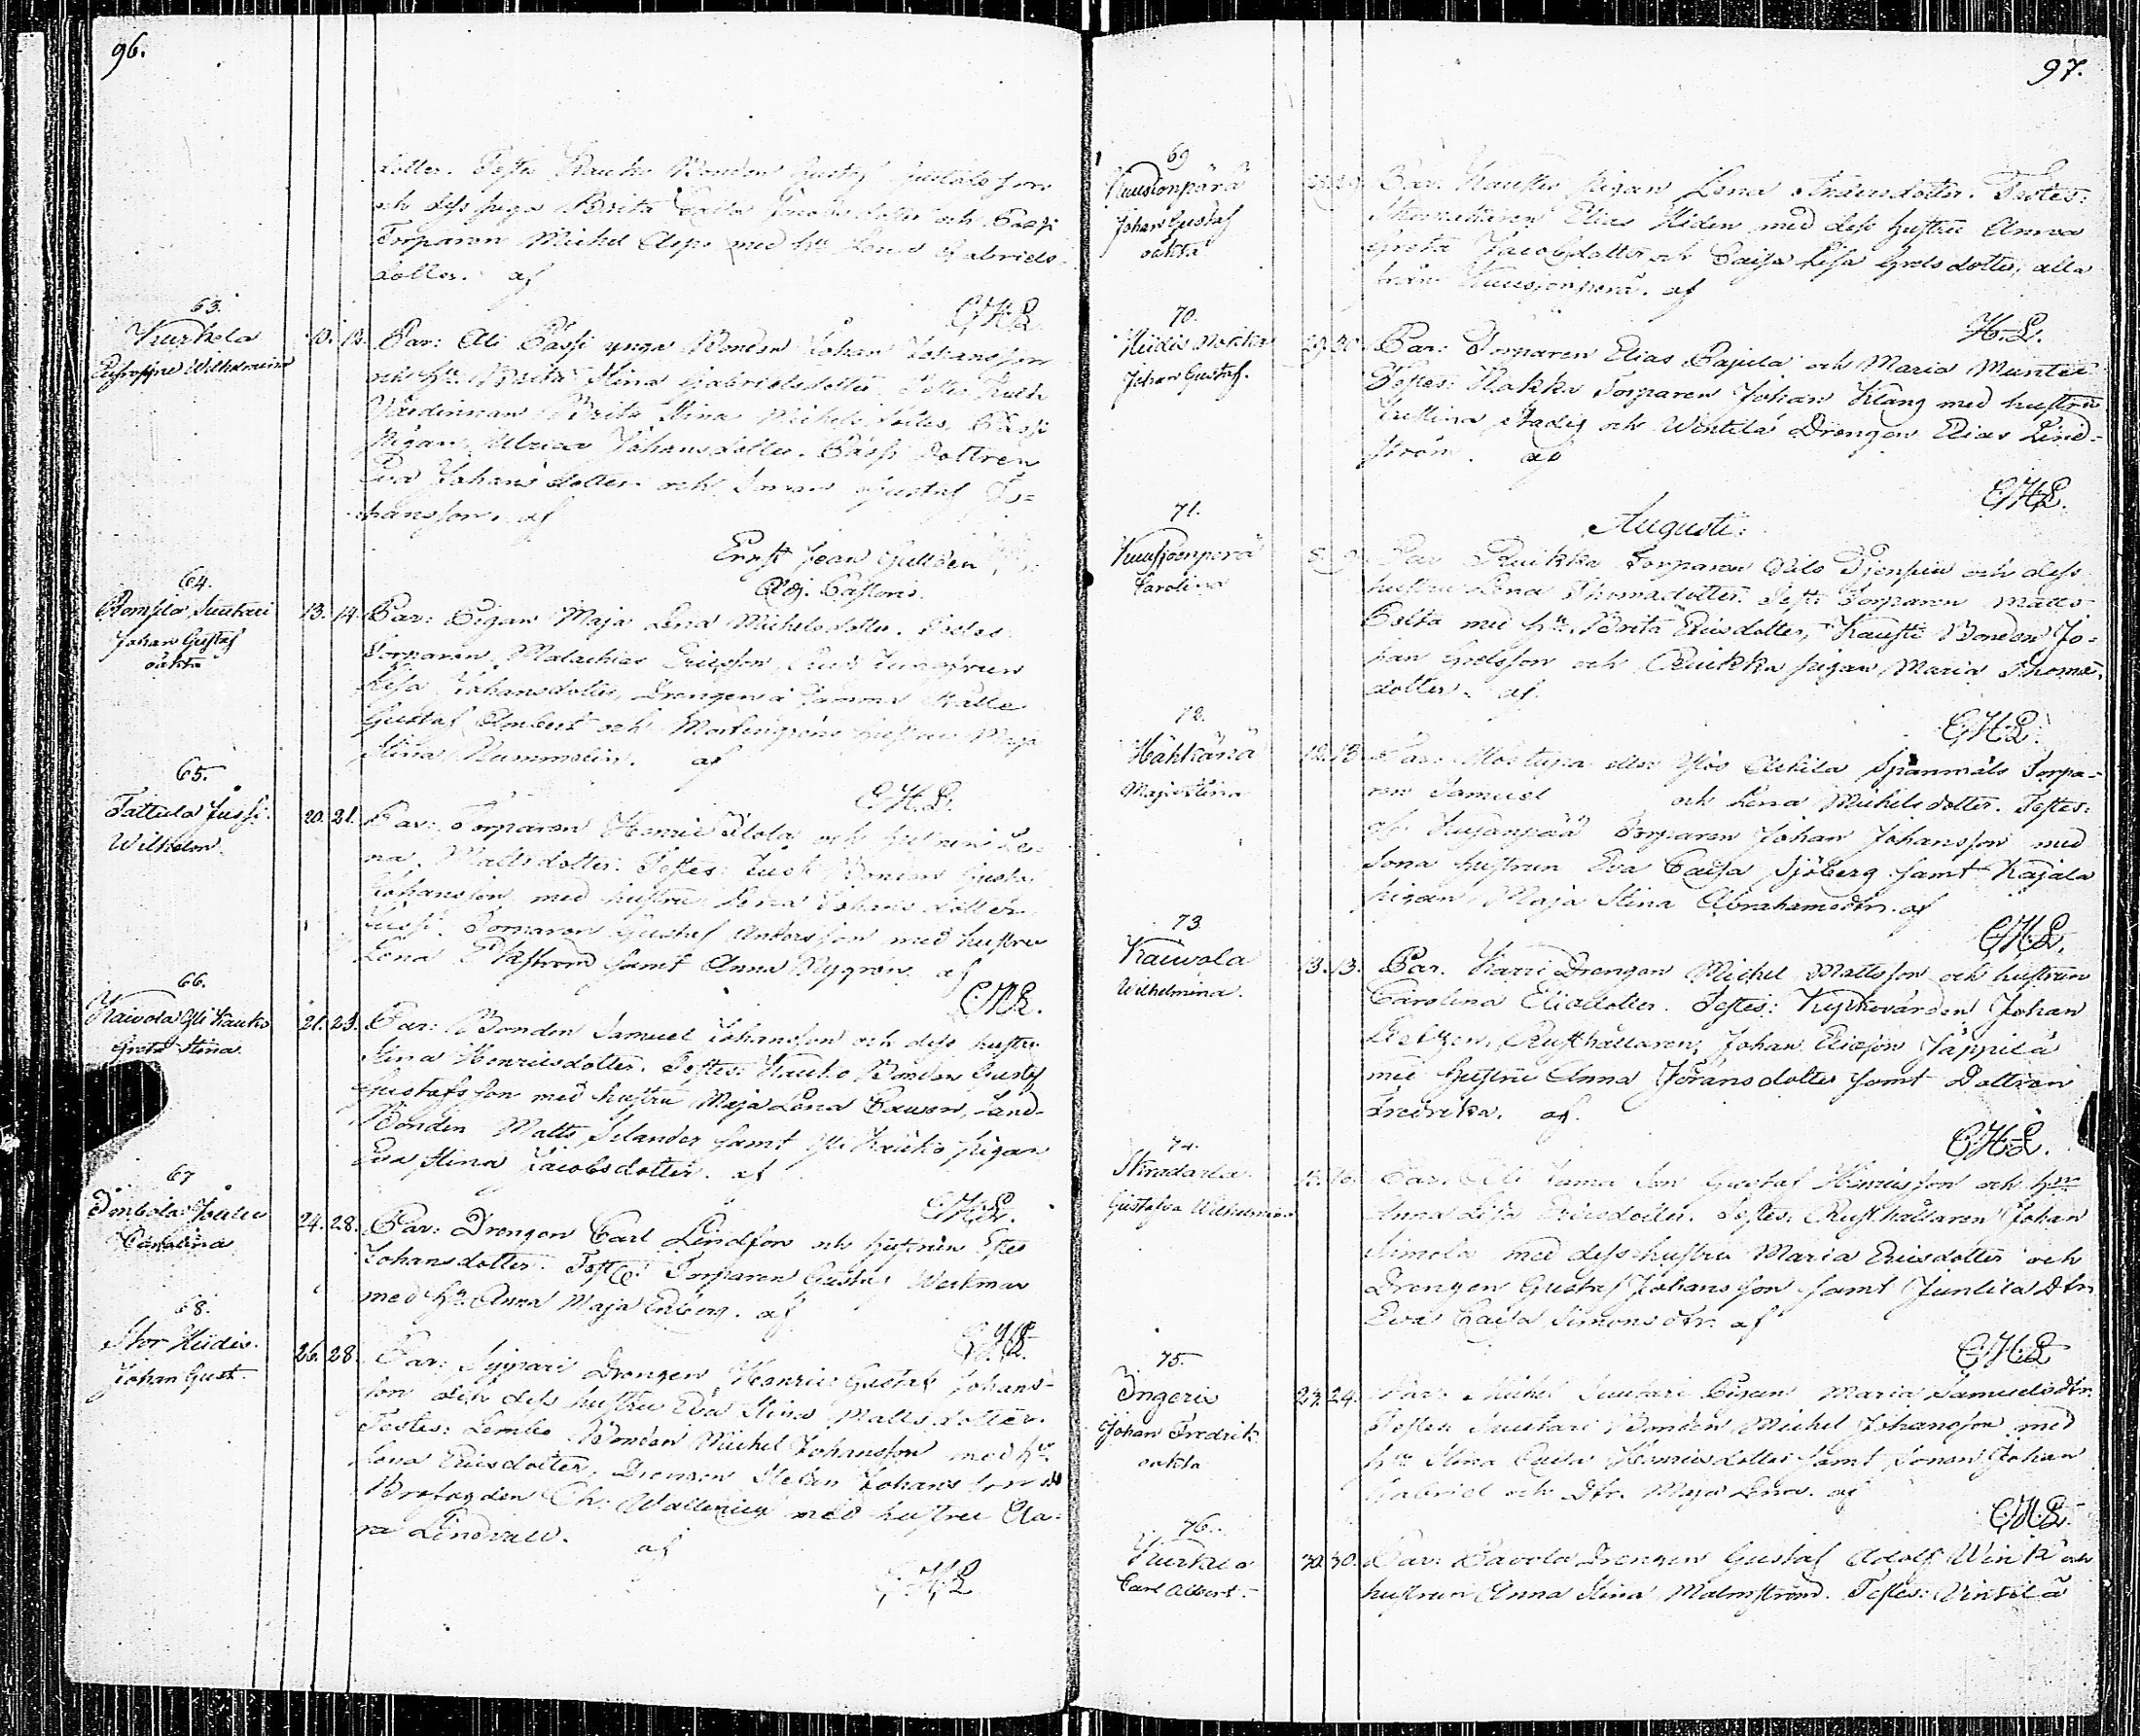 96.
dotter. Testes Kauko Bonden Gustaf Gustafsson
och dess piga Brita Caisa Jacobsdotter och Passi
Torparen Michel Asp med h:u Lena Gabriels-
dotter. af
C.H.L.
63.
Kurkela
Wilhelmina
10. 12. Par: Ali Passi ynga Bonden Johan Johansson
och h:u Brita Stina Gabrielsdotter. Testes
Wärdinnan Brita Stina Michelsdotter, Passi
Pigan Ulrica Johansdotter, Passi Dottren
Eva Johansdotter och Sonen Gustaf Jo-
hansson. af
Ernst Jean Gulldén
Adj. Pastoris.
64.
Suutari
Johan Gustaf
oäkta
13. 14. Par: Pigan Maja Lena Michelsdotter. Testes
Torparen Malachias Ericsson
Lisa Johansdotter, Drengen å samma ställe
Gustaf och hustru Maja
Stina Nummelin. af
C.H.L.
65.
Tattula Jussi.
Wilhelm.
20. 21. Par: Torparen Henric Ilola och hustrun Le-
na Mattsdotter. Testes: Bonden Gustaf
Johansson med hustru Lena Johansdotter
Jussi Torparen Gustaf Andersson med hustru
Lena samt Anna Nygrén. af
C.H.L.
66.
Kaivola Yli Kauko
Greta Stina.
21. 23. Par: Bonden Samuel Johansson och dess hustru
Stina Henricsdotter. Testes: Kauko Bonden Gustaf
Gustafsson med hustru Maja Lena, Land-
Bonden Matts Selander samt Yli Kauko pigan
Eva Stina Jacobsdotter. af
C.H.L.
67
Carolina
24. 28. Par: Drengen Carl Lindfors och hustrun
Johansdotter. Testes: Torparen Gustaf Werkman
med h:u Anna Maja Enberg. af
C.H.L.
68.
Stor Heidis.
Johan Gust.
26. 28. Par: Syppari Drengen Henric Gustaf Johans-
son och dess hustru Eva Stina Mattsdotter.
Testes: Lembo Bonden Michel Johansson med h:u
Lena Ericsdotter, Drengen Stefan Johansson
Brofogden Ch: Wallenius med hustru Cla-
ra Lindvall. af
C.H.L.
97.
69
Kuusionpärä
Johan Gustaf
oäkta
Par: Kaustio Pigan Lena Andersdotter. Testes:
Elias Hiden med dess hustru Anna
Greta Jacobsdotter och Caisa Lisa Grelsdotter, alla
från Kuusjonperä. af
H.L.
70.
Heidis Nokka
Johan Gustaf.
29. 30. Par: Torparen Elias Pajula och Maria Munter
Testes: Nokka Torparen Johan Klang med hustru
Justina Stadig och Wintilä Drengen Elias Lind-
ström. af
C.H.L.
Augusti:
71.
Kuusjoenperä
Carolina
8. 9. Par: Ruikka Torparen och dess
hustru Lena Thomasdotter. Testes Torparen Matts
med h:u Brita Ericsdotter, Kausti Bonden Jo-
han Grelsson och Ruikka pigan Maria Thomas-
dotter. af
C.H.L.
72.
Hähkänä
Maja Stina
12. 13. Par: eller Spanmåls Torpa-
ren Samuel och Lena Michelsdotter. Testes:
Torparen Johan Johansson med
hustrun Eva Caisa Sjöberg samt Kajala
pigan Maja Stina Abrahamsdtr. af
C.H.L.
73.
Kaivola
Wilhelmina.
13. 13. Par. Karri Drengen Michel Mattsson och hustrun
Carolina Eliedotter. Testes: Kyrkovärden Johan
Rusthållaren Johan Ericsson Jäppilä
med hustru Anna Göransdotter samt Dottren
Fredrika. af.
C.H.L.
74.
Gustafva Wilhelmina
15. 16. Par. Ali Jama Son Gustaf Henricsson och h:u
Anna Lisa Ericsdotter. Testes: Rusthållaren Johan
Simola med dess hustru Maria Ericsdotter och
Drengen Gustaf Johansson samt Juntila Dtr
Eva Caisa Simonsdtr. af
C.H.L.
75.
Ingeris
Johan Fredrik
oäkta
23. 24. Par: Michel Suutari Pigan Maria Samuelsdtr.
Testes Suutari Bonden Michel Johansson med
h:u Stina Caisa Henricsdotter samt Sonen Johan
Gabriel och Dtr. Maja Lena. af
C.H.L.
76.
Kurkela
Carl Albert.
30. 30. Par: Pavola Drengen Gustaf Adolf Wink och
hustrun Anna Stina Malmström. Testes: Vintilä